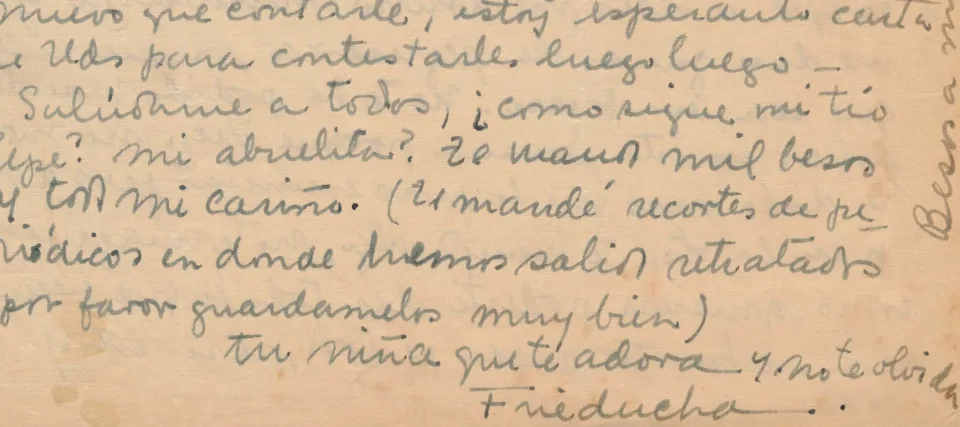 nuevo que contarle, estoy esperando carta
de Uds para contestarles luego luego –
Salúdame a todos, ¿como sigue mi tío
Pepe? mi abuelita? Te mando mil besos
y todo mi cariño. (Te mandé recortes de pe–
riódicos en donde hemos salido retratados
por favor guardamelos muy bien)
tu niña que te adora y no te olvida
Frieducha ..
Besos a